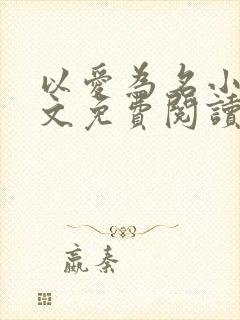 以愛為名小
文免費閱讀
嬴秦